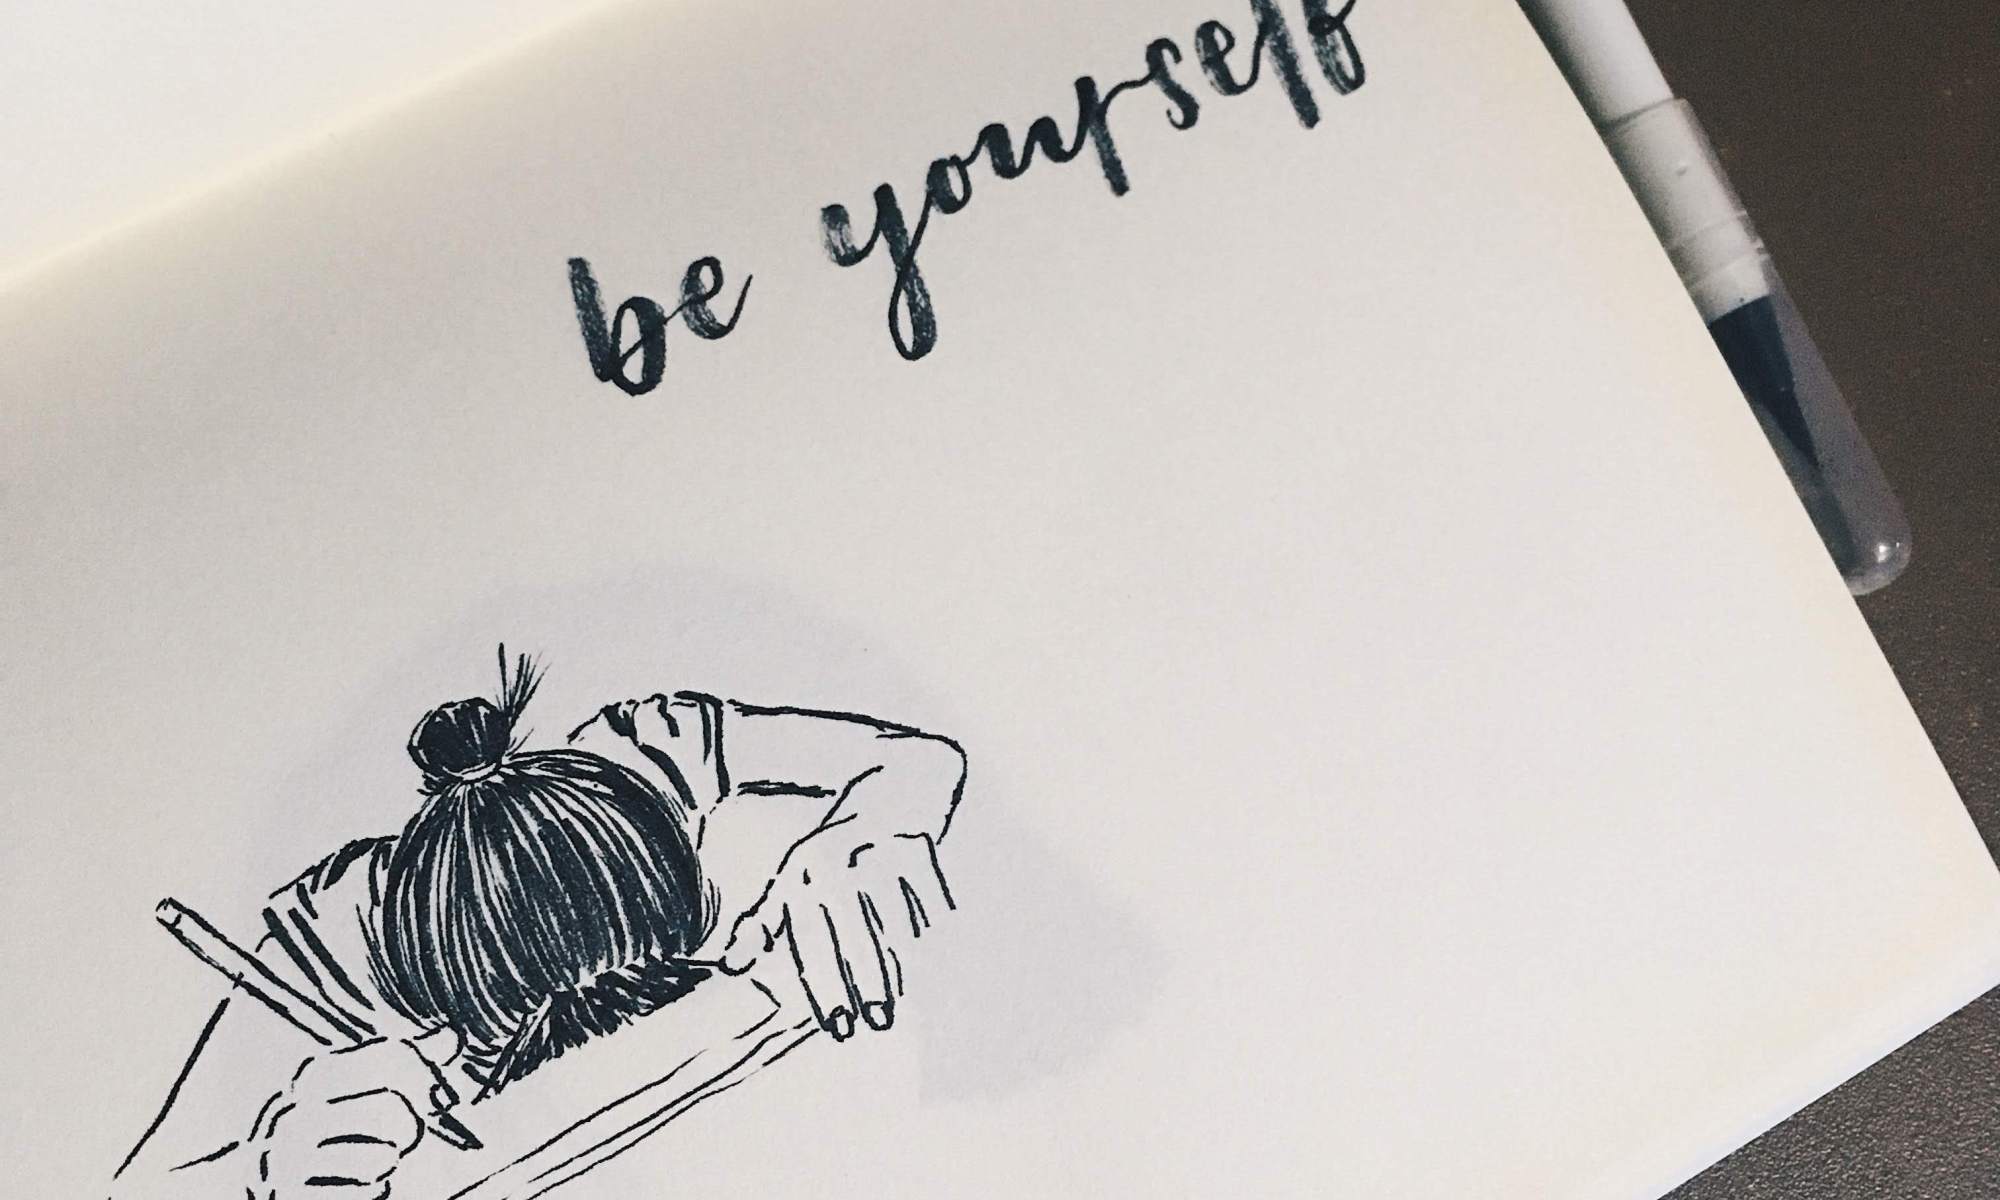 be yourself